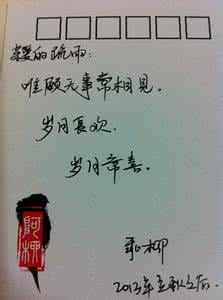 亲爱的疏雨:
唯愿无事常相见。
岁月长欢.
岁月常喜。
阿柳
柳
2013年立秋之后.